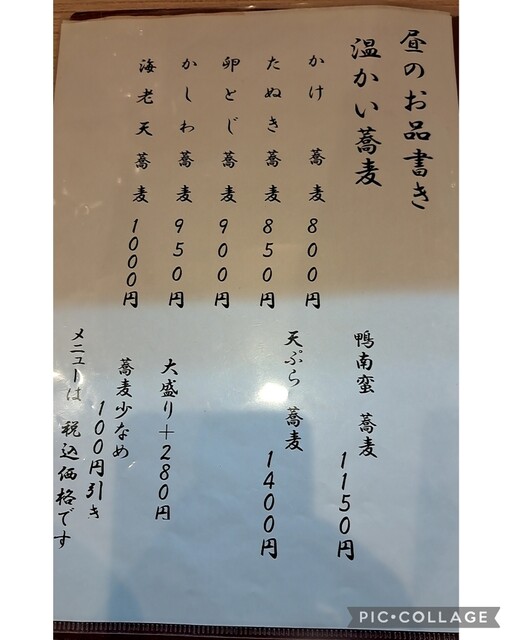 昼のお品書き
温かい蕎麦
かけ 蕎麦 800円
たぬき 蕎麦 850円
卵とじ 蕎麦 900円
かしわ 蕎麦 950円
海老天 蕎麦 1000円
鴨南蛮 蕎麦
1150円
天ぷら 蕎麦
1400円
大盛り+280円
蕎麦少なめ
100円引き
メニューは 税込価格です
PIC•COLLAGE